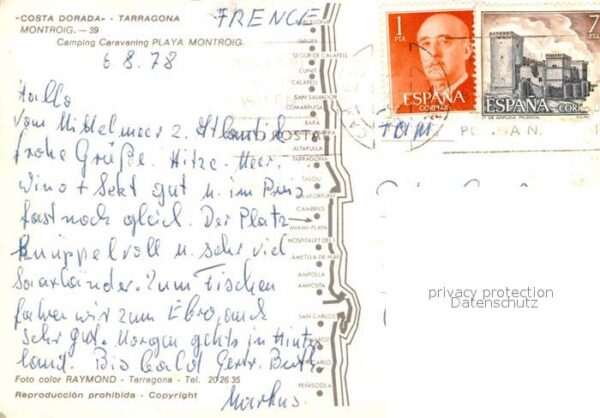 "COSTA DORADA" - TARRAGONA
MONTROIG. — 39
Camping Caravaning PLAYA MONTROIG.
FRENCE
6.8.78
Hallo
Vom Mittelmeer z. Atlantik
frohe Grüße. Hitze. Meer.
Wino + Sekt gut u. im Preis
fast noch gleich. Der Platz
knüppelvoll u. sehr viel
Saarländer. Zum Fischen
fahren wir zum Ebro, auch
sehr gut. Morgen gehts in Hinter
land. Bis bald Gertr. Berth
Markus.
Foto color RAYMOND - Tarragona - Tel. 20 26 35
Reproducción prohibida - Copyright
BARCELONA
SITGES
SEGUR DE CALAFELL
CUNIT
CALAFELL
SAN SALVADOR
COMARRUGA
BARA
ALTAFULLA
TARRAGONA
SALOU
CAMBRILS
MIAMI-PLAYA
HOSPITALET DEL I.
AMETLLA DE MAR
AMPOLLA
AMPOSTA
SAN CARLOS
PEÑISCOLA
1
PTA
ESPAÑA
CORREOS
7
ESPAÑA
privacy protection
Datenschutz